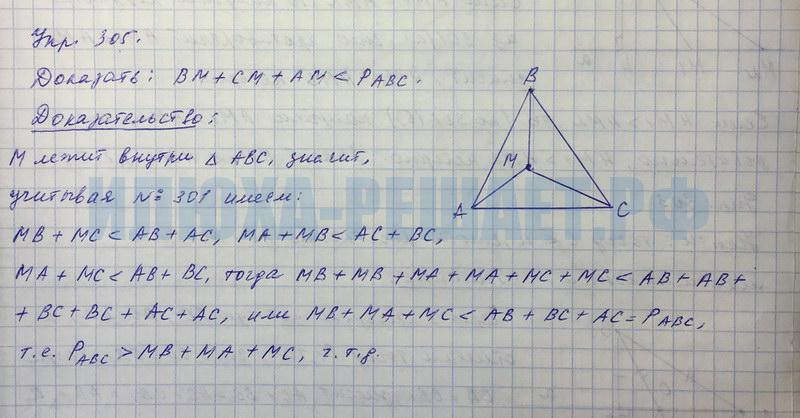 Упр. 305.
Доказать: BM + CM + AM < P ABC.
Доказательство:
M лежит внутри △ ABC, значит,
учитывая № 301 имеем:
MB + MC < AB + AC, MA + MB < AC + BC,
MA + MC < AB + BC, тогда MB + MB + MA + MA + MC + MC < AB + AB +
+ BC + BC + AC + AC, или MB + MA + MC < AB + BC + AC = P ABC,
т.е. P ABC > MB + MA + MC, ч.т.д.
B
M
A
C
ИЛЮХА-РЕШАЕТ.РФ